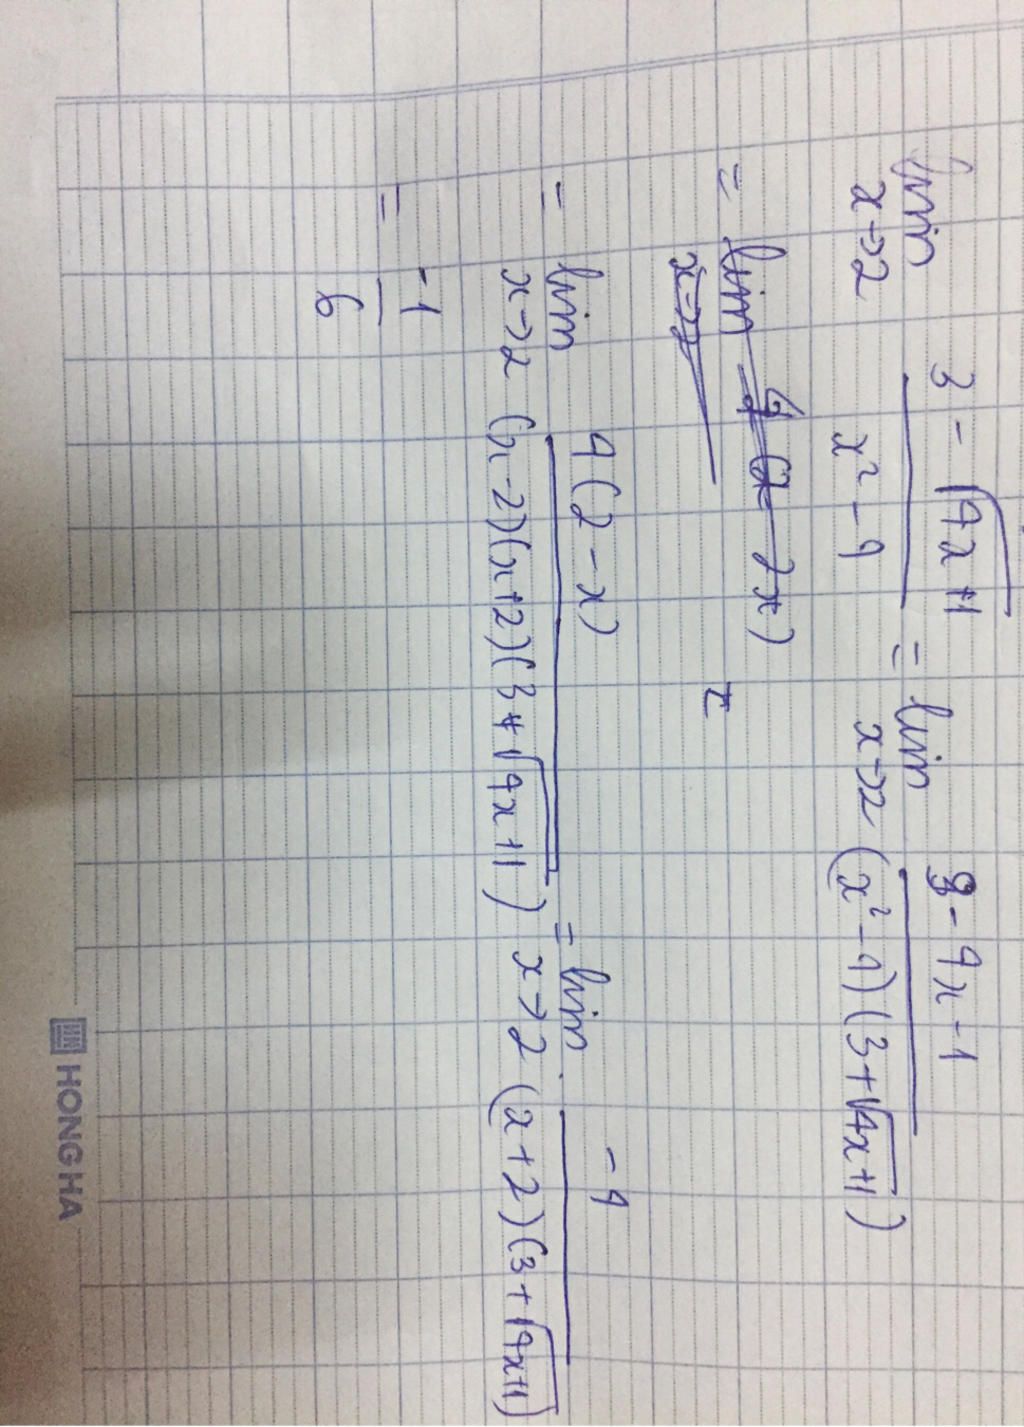 lim x→2 (3 - √(4x+1)) / (x² - 4) = lim x→2 (9 - 4x - 1) / ((x² - 4)(3 + √(4x+1)))
= lim x→2
= lim x→2 4(2 - x) / ((x - 2)(x + 2)(3 + √(4x+1))) = lim x→2 -4 / ((x + 2)(3 + √(4x+1)))
= -1/6
HONG HA